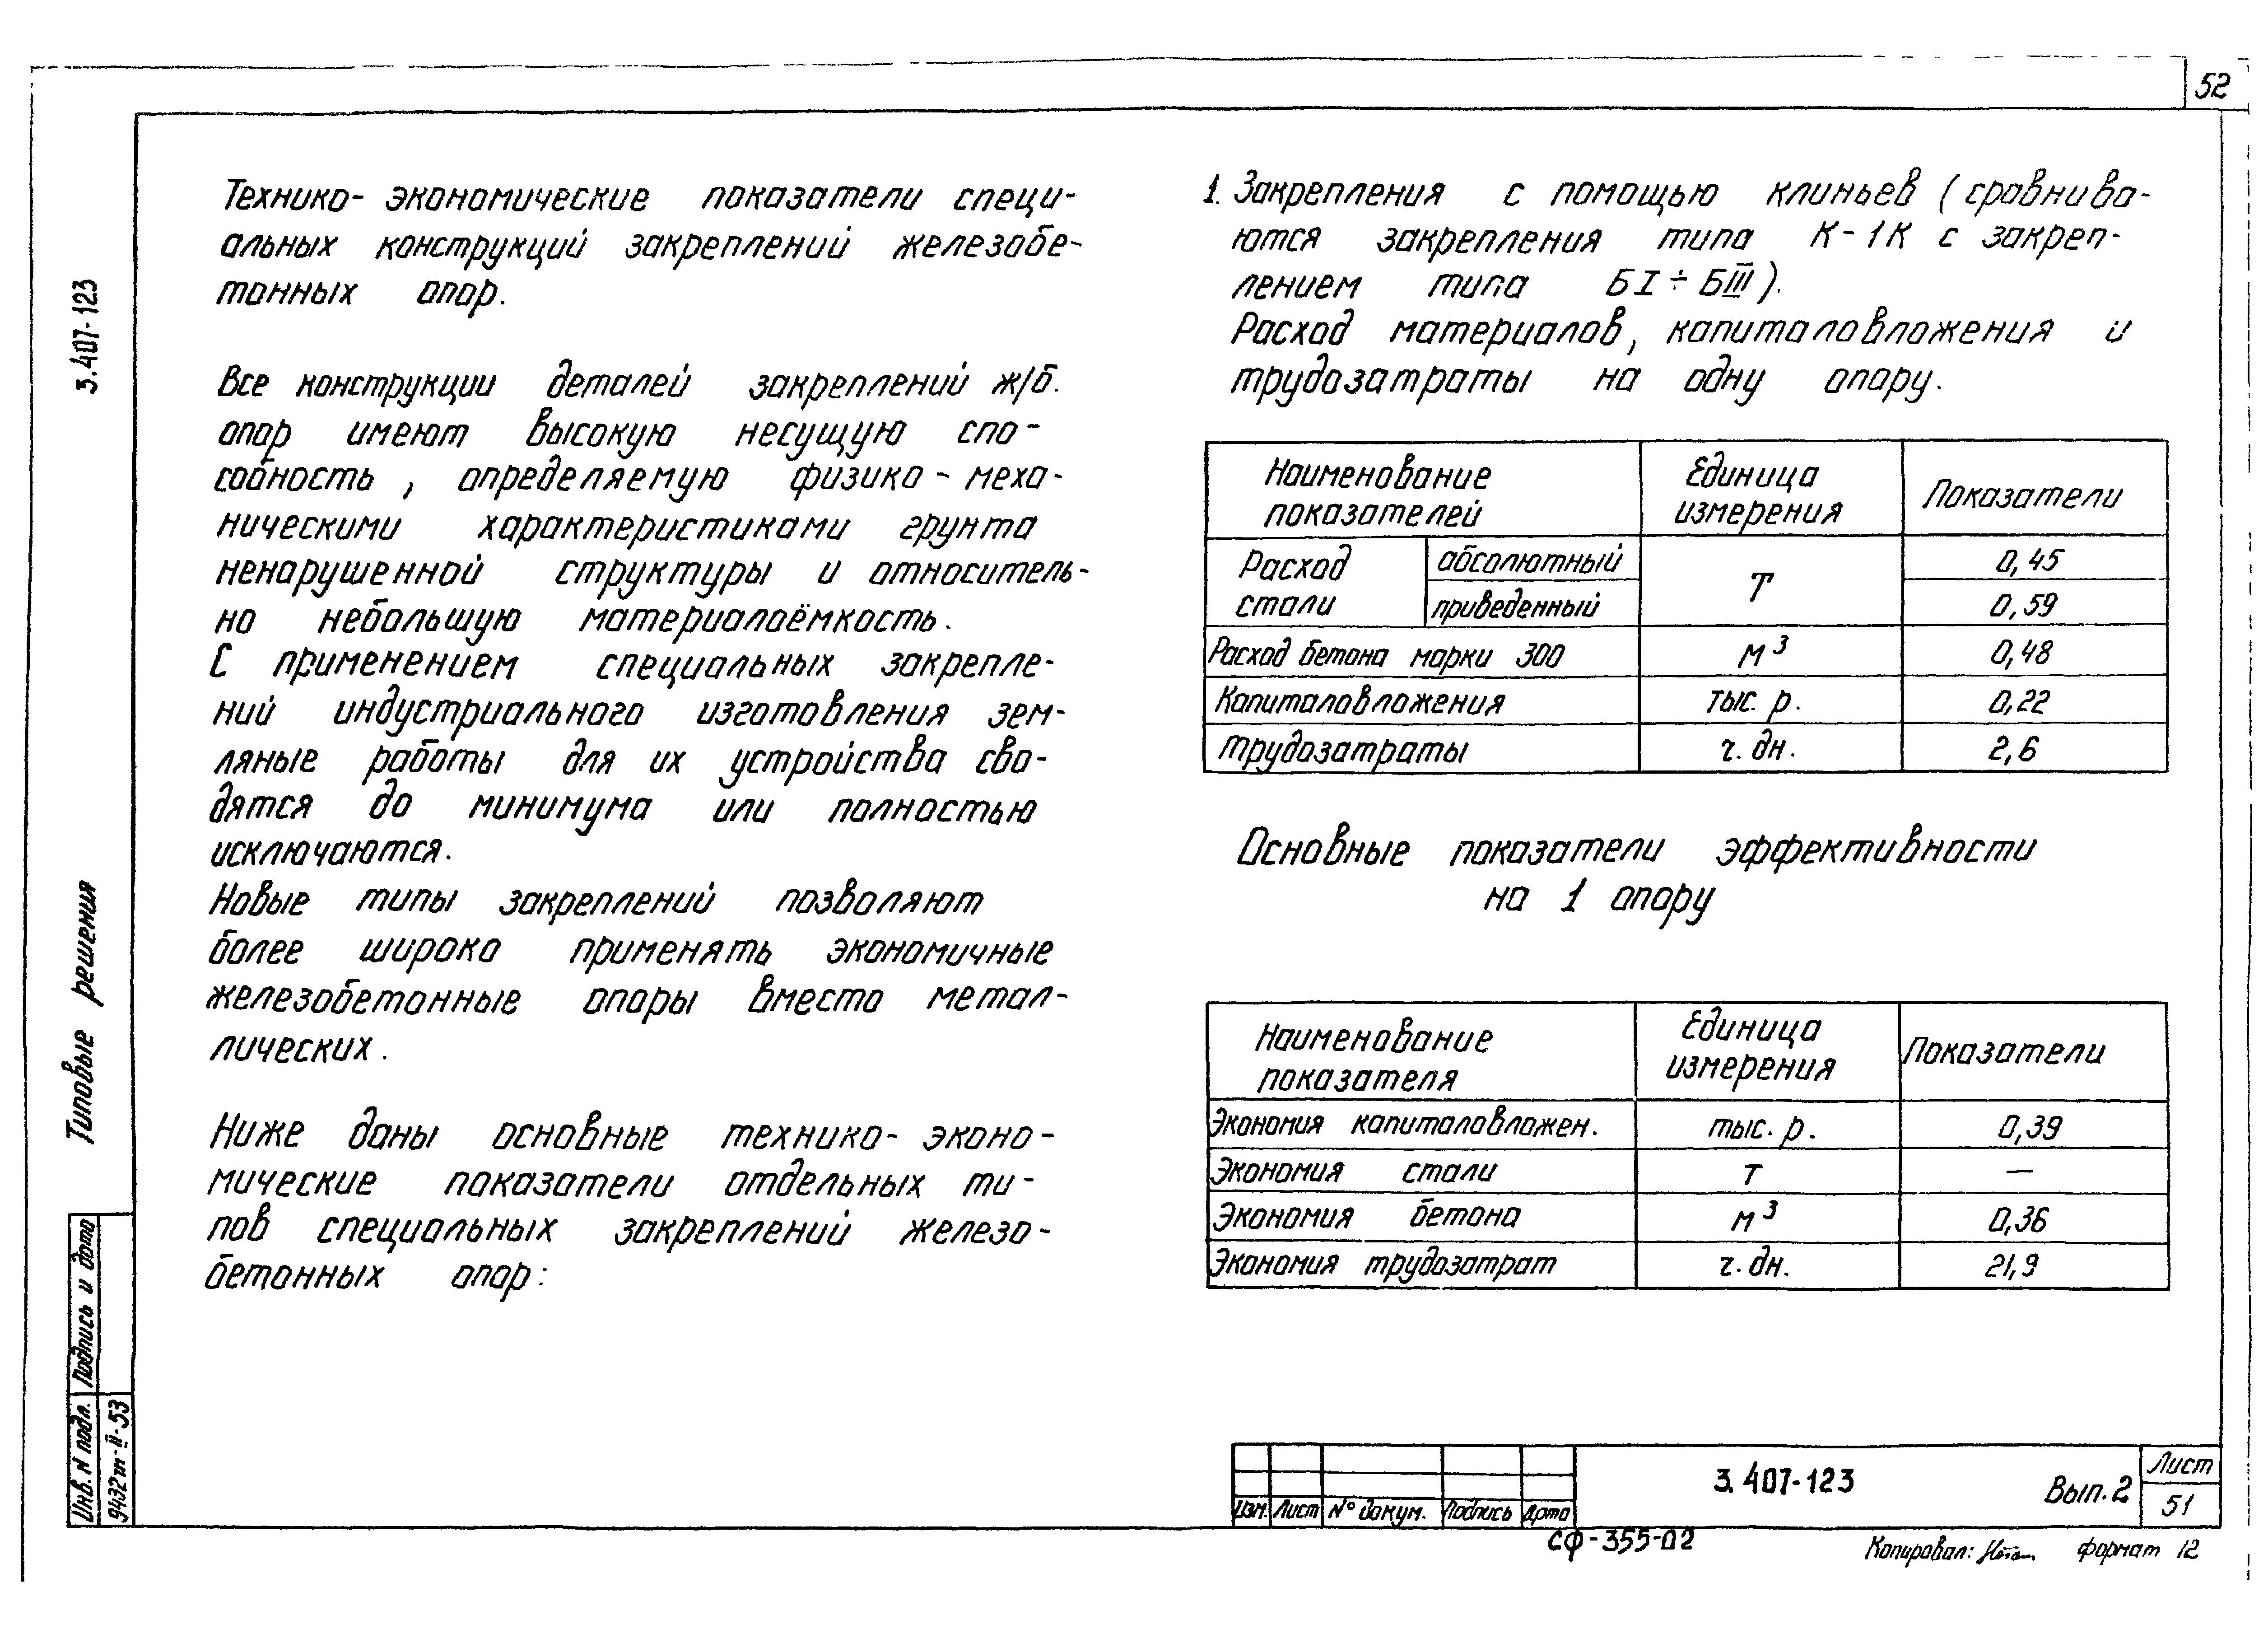 52
Технико- экономические показатели специ-
альных конструкций закреплений железобе-
тонных опор.
Все конструкции деталей закреплений ж/б.
опор имеют высокую несущую спо-
собность, определяемую физико-меха-
ническими характеристиками грунта
ненарушенной структуры и относитель-
но небольшую материалоёмкость.
С применением специальных закрепле-
ний индустриального изготовления зем-
ляные работы для их устройства сво-
дятся до минимума или полностью
исключаются.
Новые типы закреплений позволяют
более широко применять экономичные
железобетонные опоры вместо метал-
лических.
Ниже даны основные технико- эконо-
мические показатели отдельных ти-
пов специальных закреплений железо-
бетонных опор:
1. Закрепления с помощью клиньев (сравнива-
ются закрепления типа К-1К с закреп-
лением типа БI÷БIII).
Расход материалов, капиталовложения и
трудозатраты на одну опору.
Наименование показателей Единица измерения Показатели
Расход стали абсолютный т 0,45
приведенный 0,59
Расход бетона марки 300 м³ 0,48
Капиталовложения тыс. р. 0,22
Трудозатраты ч. дн. 2,6
Основные показатели эффективности
на 1 опору
Наименование показателя Единица измерения Показатели
Экономия капиталовложен. тыс. р. 0,39
Экономия стали т —
Экономия бетона м³ 0,36
Экономия трудозатрат ч. дн. 21,9
3.407-123
Типовые решения
Подпись и дата
Инв. N подл.
9432тм-II-53
Изм. Лист N° докум. Подпись Дата
3.407-123 Вып.2
Лист
51
СФ-355-02
Копировал: формат 12